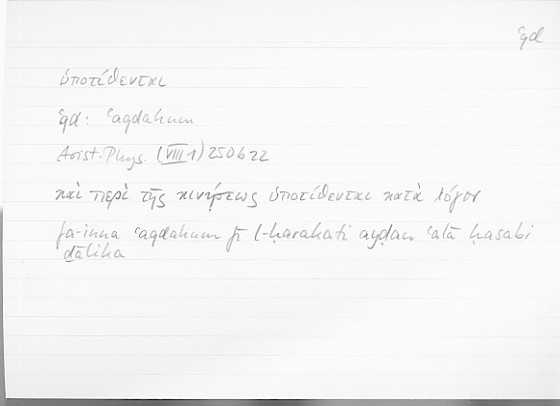 ʿqd
ὑποτίθενται
ʿqd: ʿaqdahum
Arist. Phys. (VIII 1) 250b22
καὶ περὶ τῆς κινήσεως ὑποτίθενται κατὰ λόγον
fa-inna ʿaqdahum fī l-ḥarakati ayḍan ʿalā ḥasabi
ḏālika